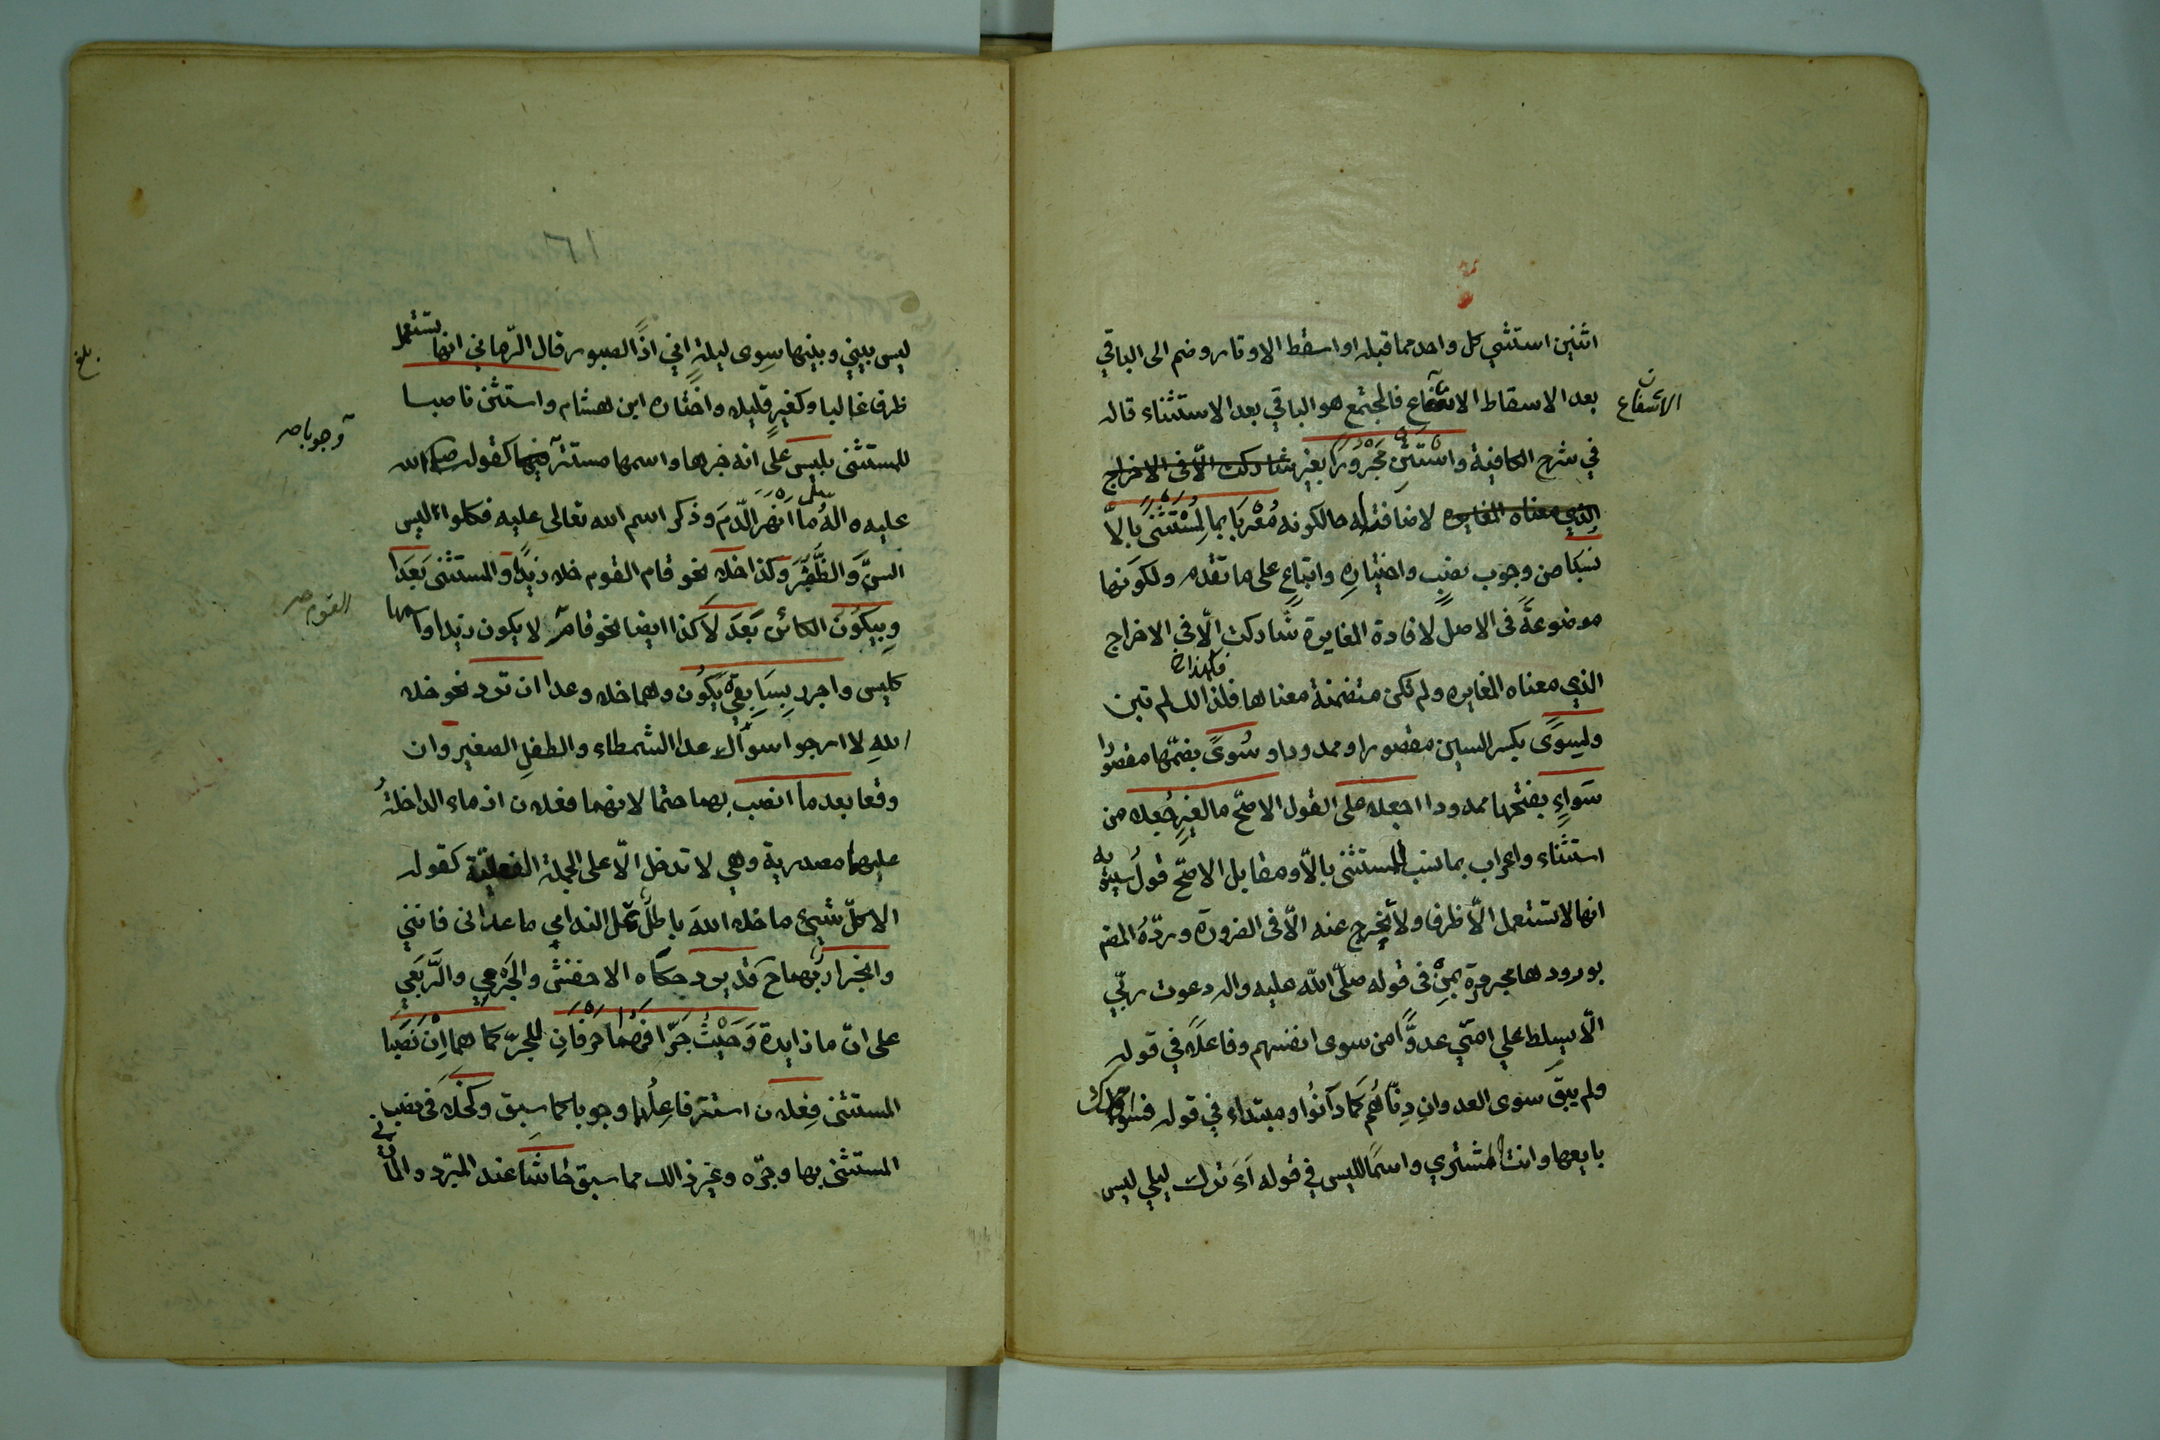 اثنين استثني كل واحد مما قبله او اسقط الاوتار وضم الى الباقي
بعد الاسقاط الاشفاع فالمجتمع هو الباقي بعد الاستثناء قاله
الاشفاع ن
في شرح الكافية واستثن مجرورا بغير شاركت الّا في الاخراج
الذي معناه المغايره لاضافته له حالكونه مُعْرَبًا بما لِمُسْتَثْنًى بالّا
نسبا من وجوب نصب واختياره واتباع على ما تقدم ولكونها
موضوعة في الاصل لافادة المغايرة شاركت الّا في الاخراج
الذي معناه المغايره ولم تكن متضمنة معناها فلذالك لم تبن
ولسوًى بكسر السين مقصورا وممدودا و سُوًى بضمّها مقصورا
سَواءٍ بفتحها ممدودا اجعله على القول الاصحّ ما لغيرٍ جُعله من
استثناء واعراب بما نسب للمستثنى بالّا ومقابل الاصحّ قولُ سيبويه
انها لا تستعمل الّا ظرفا ولا تخرج عنه الّا في الضرورة وردّهُ المصـ
بورودها مجرورة بمن في قوله صلّى اللّه عليه واله دعوت ربّي
الّا يسلط علي امتي عدوًّا من سوى انفسهم وفاعلة في قوله
ولم يبقَ سوى العدوانِ دِنّاهُم كما دَانُوا ومبتداء في قوله فسواك
بايعها وانت المشتري واسمًا لليس في قوله أَءَ ترك ليلي ليس
ليس بيني وبينها سوى ليلة اني اذًا لصبور قال الرّماني انها تستعمل
ظرفا غالبا وكغيرٍ قليله واختاره ابن هشام واستثن ناصبا
للمستثنى بليس على انه خبرها واسمها مستتر فيها كقوله صلى الله
وجوبا صح
عليه واله ما انهر الدّمَ وذكر اسم الله تعالى عليه فكلوا ليس
السِّنَّ والظُّفُرَ وكذا خله نحو قام القوم خله زيدًا والمستثنى بعَدَا
وبيَكُونُ الكائن بَعدَ لا كذا ايضا نحو قام لا يكون زيدا واسمها
القوم صح
كليس واجرر بسابقي يكُون وهما خله وعدا ان ترد نحو خله
الله لا ارجو اسواك عدا الشمطاء والطفلِ الصغير وان
وقعا بعد ما انصب بهما حتما لانهما فعلان اذ ماء الداخلةُ
عليهما مصدرية وهي لا تدخل الّا على الجملة الفعلية كقوله
الا كلّ شيئ ما خله اللهَ باطلُ تمل الندامي ما عداني فانني
وانجرار بهما ح قد يرد حكاه الاخفش والجَرمي والرَّبَعي
على انّ ما زايدة وَحَيْثُ جَرّا فهُما حرفان للجرّ كما هما اِن نَصَبَا
المستثنى فِعلان استتر فاعِلُهما وجوبا كما سبق وكخله في نصب
المستثنى بها وجرّه وغير ذالك مما سبق حاشا عند المبرّد والمازني
بلغ